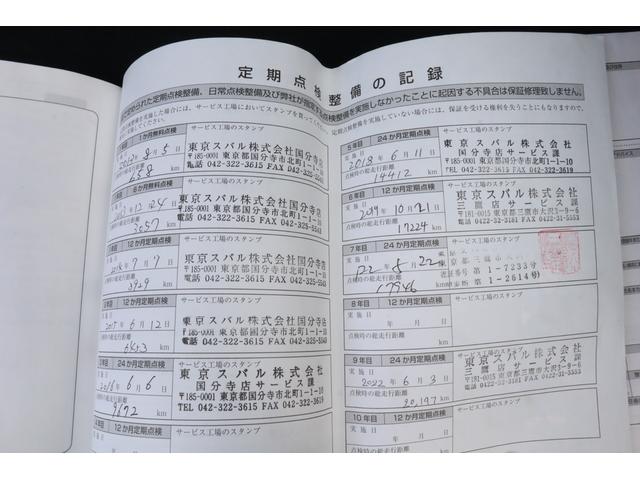 定期点検整備の記録
られた定期点検整備、日常点検整備及び弊社が指定する点検整備を実施しなかったことに起因する不具合は保証修理致しません。
を実施した場合には、サービス工場においてスタンプを
定期点検整備を実施していない場合は、保証を受ける権利を失うこともありますので、
1か月無料点検
サービス工場のスタンプ
8月5日
東京スバル株式会社国分寺店
〒185-0001 東京都国分寺市北町1-1-10
電話 042-322-3615 FAX 042-322-3619
km
6か月無料点検
サービス工場のスタンプ
東京スバル株式会社国分寺店
〒185-0001 東京都国分寺市北町1-1-10
電話 042-322-3615 FAX 042-322-3619
3057 km
12か月定期点検
サービス工場のスタンプ
7月7日
東京スバル株式会社国分寺店
〒185-0001 東京都国分寺市北町1-1-10
電話 042-322-3615 FAX 042-322-3619
3929 km
12か月定期点検
サービス工場のスタンプ
2015年6月12日
東京スバル株式会社国分寺店
〒185-0001 東京都国分寺市北町1-1-10
電話 042-322-3615 FAX 042-322-3619
km
24か月定期点検
サービス工場のスタンプ
2016年6月6日
東京スバル株式会社
国分寺店サービス課
〒185-0001 東京都国分寺市北町1-1-10
TEL 042-322-3615 FAX 042-322-3619
9672 km
12か月定期点検
サービス工場のスタンプ
年 月 日
5年目 24か月定期点検
サービス工場のスタンプ
実施日
2018年6月11日
点検時の総走行距離
14412 km
東京スバル株式会社
国分寺店サービス課
〒185-0001 東京都国分寺市北町1-1-10
TEL 042-322-3615 FAX 042-322-3619
6年目 12か月定期点検
サービス工場のスタンプ
実施日
2019年10月21日
点検時の総走行距離
17224 km
東京スバル株式会社
三鷹店サービス課
〒181-0015 東京都三鷹市大沢1-9-6
電話 0422-32-3181 FAX 0422-31-5553
7年目 24か月定期点検
サービス工場のスタンプ
実施日
年8月22日
点検時の総走行距離
17946 km
第1-7233号
第1-2614号
8年目 12か月定期点検
サービス工場のスタンプ
実施日
年 月 日
点検時の総走行距離
km
9年目 24か月定期点検
サービス工場のスタンプ
実施日
2022年6月3日
点検時の総走行距離
20,197 km
東京スバル株式会社
三鷹店サービス課
〒181-0015 東京都三鷹市大沢1-9-6
電話 0422-32-3181 FAX 0422-31-5553
10年目 12か月定期点検
サービス工場のスタンプ
実施日
年 月 日
点検時の総走行距離
km